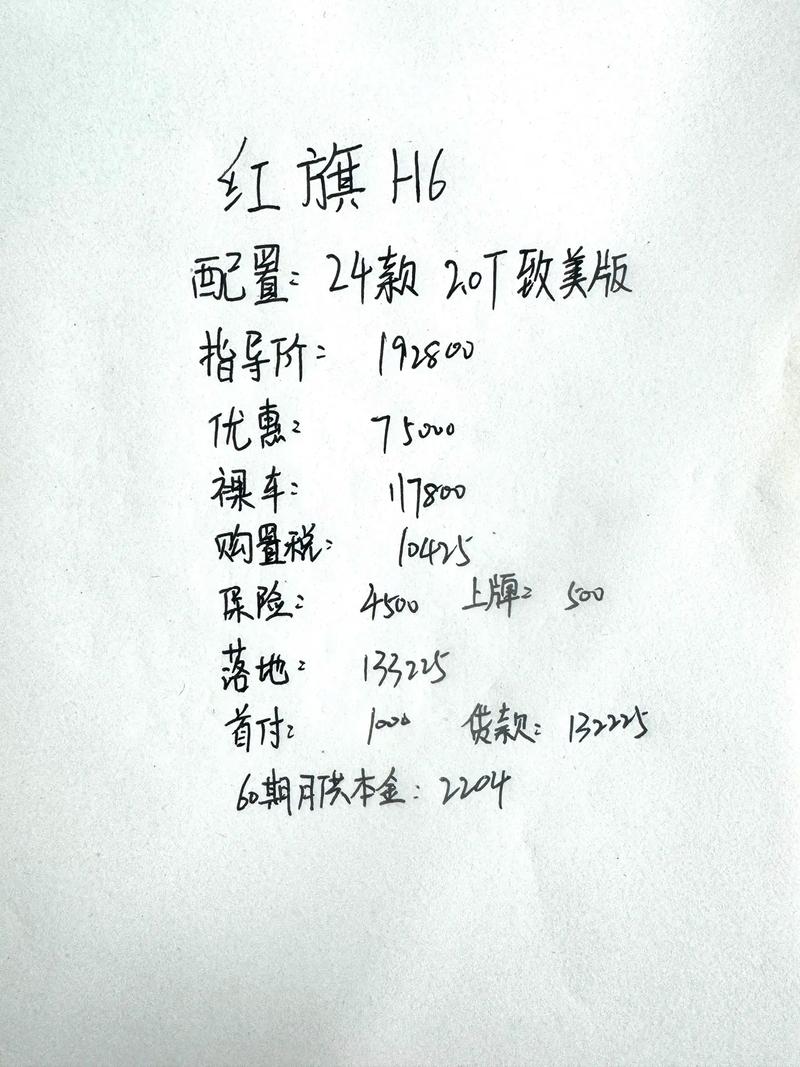 红旗 H6
配置: 24款 2.0T 致美版
指导价: 192800
优惠: 75000
裸车: 117800
购置税: 10425
保险: 4500 上牌: 500
落地: 133225
首付: 1000 贷款: 132225
60期月供本金: 2204